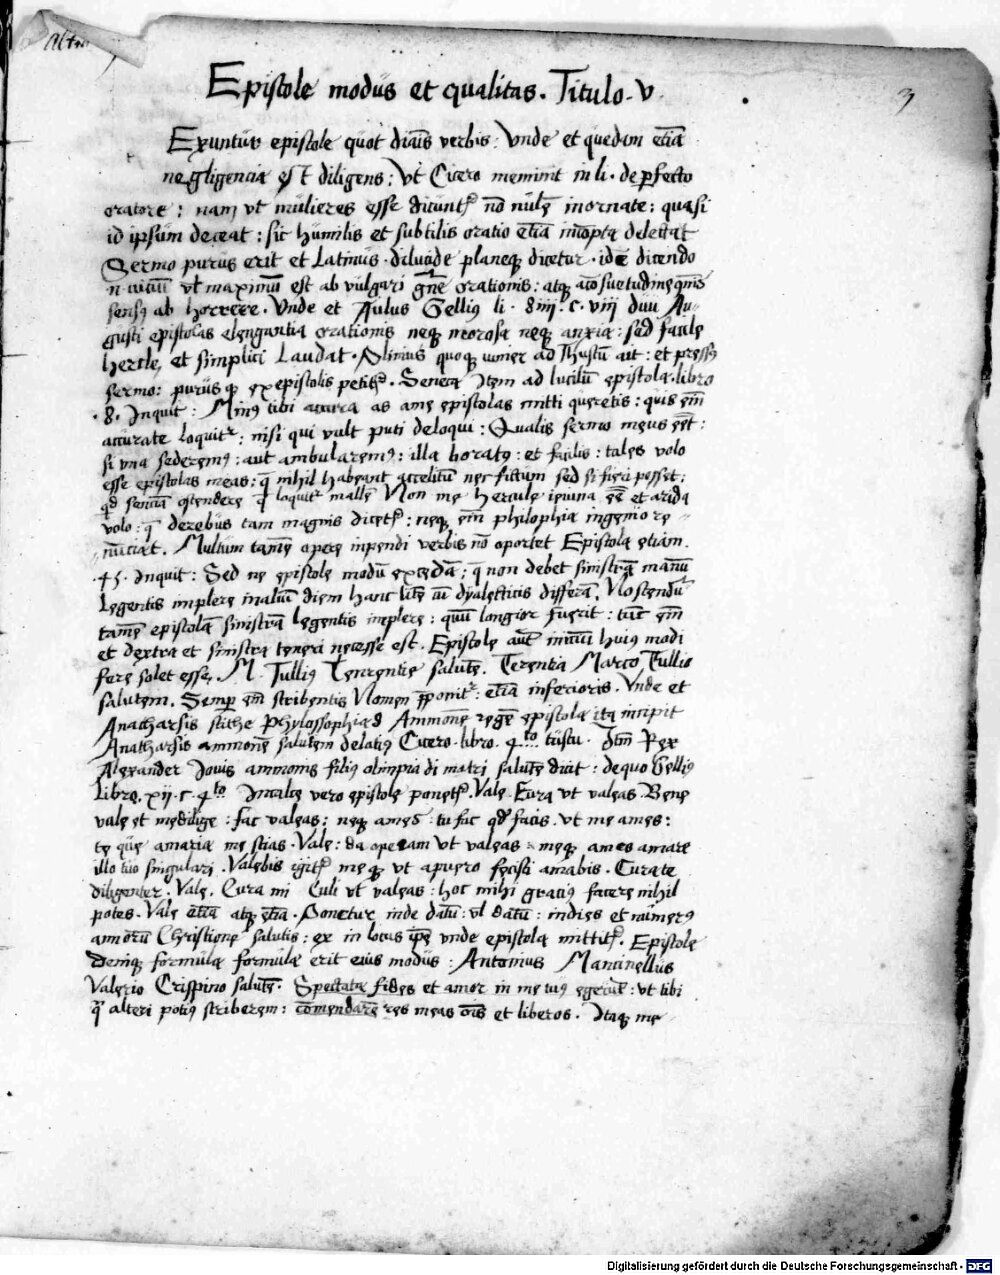 Altro
3
Epistole modus et qualitas. Titulo. V.
Exuntur epistole quot dianis verbis: Unde et quedam etiã
negligencia est diligens: Ut Cicero meminit in li. de perfecto
oratore: nam ut mulieres esse dicunt nõ nulle inornate: quasi
id ipsum deceat: sic humilis et subtilis oratio etiã delectat
Sermo purus erit et Latinus. dilucide planeq dicetur. idẽ dicendo
n vitiũ ut maximũ est ab vulgari gñe orationis: atq suetudine
sensq ab horrere. Unde et Aulus Gellius li. 8iiii. c. viii divi Au-
gusti epistolas elengantia orationis neq morosa neq anxia: sed facile
hercle, et simplici Laudat. Plinius quoq ad Thustũ ait: et pressq
sermo: purus q ex epistolis petit. Seneca Item ad luciliũ epistola. libro
.8. Inquit: Minq tibi accura as ame epistolas mitti queretis: quis eñ
accurate loquit: nisi qui vult puti deloqui: Qualis sermo meus eẽt:
si una sederemq: aut ambularemq: illa boratq: et facilis: tales volo
esse epistolas meas: q nihil habeant accelitũ nec fictum sed si fieri posset:
qd senciã ostendere q loquit mallẽ Non me hercule ieiuna eẽ et arida
volo: q derebus tam magnis dicet: neq eñ philophia ingenio re-
nũciat. Multum tamẽ opere inpendi verbis nõ oportet Epistola etiam
.45. Inquit: Sed ne epistole modũ excedã: q non debet sinistrã manũ
Legentis implere inaliũ diem hanc litẽ cũ dyalecticis differã. Nostendũ
tamẽ epistolã sinistrã legentis implere: quũ longior fuerit: tũc eñ
et dextra et sinistra teneri necesse est. Epistole aut initiũ huius modi
fere solet esse, M. Tullius Terrentie salutẽ. Terentia Marco Tullio
salutem. Semp eñ scribentis Nomen pponit: etiã inferioris. Unde et
Anacharsis scithe Phylossophia Ammonẽ regẽ epistola ita incipit
Anatharsis ammonẽ salutem delatiq Cicero. libro. 4to tuscu. Itẽ Rex
Alexander Jovis ammonis filiq olimpia di matri salutẽ dicit: de quo Gelliq
Libro. xii. c. 4to Incalce vero epistole ponet. Vale Cura ut valeas. Bene
vale et me dilige: fac valeas: neq ames: tu fac qd facis. ut me ames:
te que amari a me scias. Vale: da operam ut valeas meq ames amare
illo tuo singulari. Valebis igit meq ut apuero fecisti amabis. Curate
diligenter. Vale. Cura mi Culi ut valeas: hoc mihi gratius facere nihil
potes. Vale etiã atq etiã. Ponetur inde datũ: vl datũ: indies et numerq
annorũ Christione salutis: ex in locus ipẽ unde epistola mittit. Epistole
Demq formula formule erit eius modus: Antonius Mancinellus
Valerio Crispino salutẽ. Spectata fides et amor in me tuus egerut: ut tibi
q alteri potiq scriberem: comendare res meas ois et liberos. Itaq me-
Digitalisierung gefördert durch die Deutsche Forschungsgemeinschaft - DFG